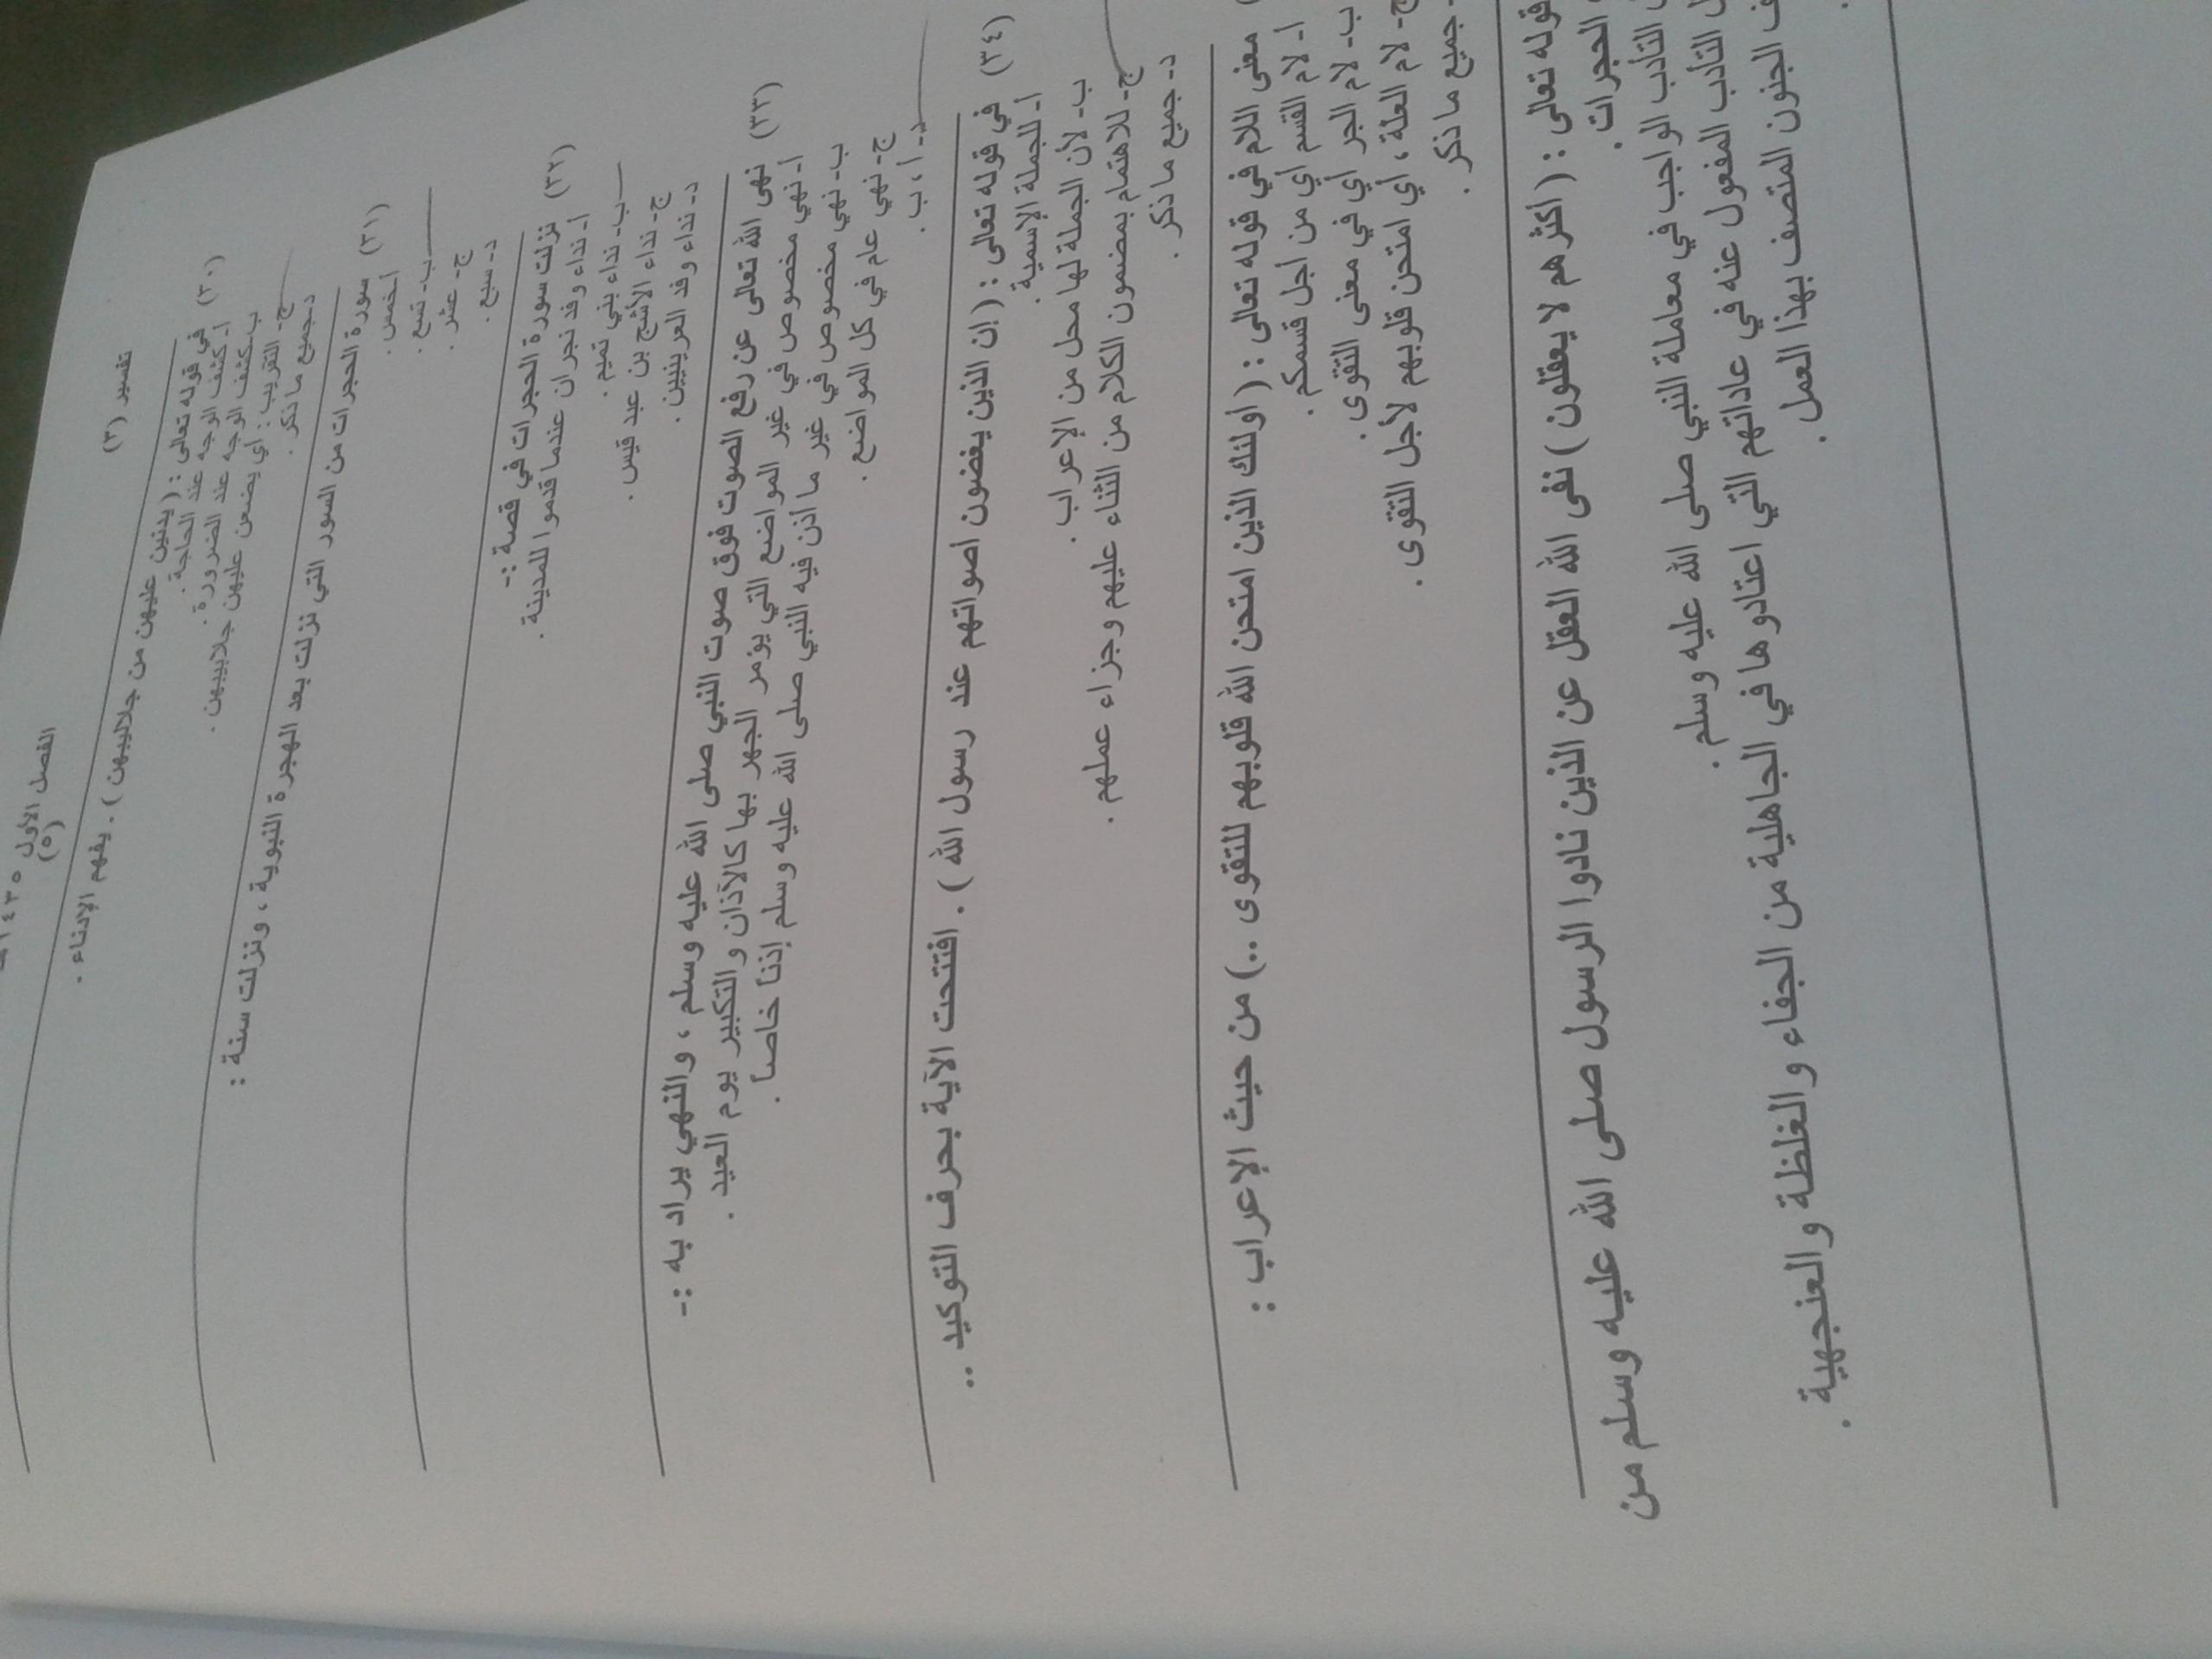 الفصل الأول ١٤٣٥
(٥)
تفسير (٣)
(٣٠) في قوله تعالى : ( يدنين عليهن من جلابيبهن ) . يفهم الإدناء .
أ- كشف الوجه عند الحاجة .
ب- كشف الوجه عند الضرورة .
ج- التقريب : أي يضعن عليهن جلابيبهن .
د- جميع ما ذكر .
(٣١) سورة الحجرات من السور التي نزلت بعد الهجرة النبوية ، ونزلت سنة :
أ- خمس .
ب- تسع .
ج- عشر .
د- سبع .
(٣٢) نزلت سورة الحجرات في قصة :-
أ- نداء وفد نجران عندما قدموا للمدينة .
ب- نداء بني تميم .
ج- نداء الأشج بن عبد قيس .
د- نداء وفد العرينيين .
(٣٣) نهى الله تعالى عن رفع الصوت فوق صوت النبي صلى الله عليه وسلم ، والنهي يراد به :-
أ- نهي مخصوص في غير المواضع التي يؤمر الجهر بها كالآذان والتكبير يوم العيد .
ب- نهي مخصوص في غير ما أذن فيه النبي صلى الله عليه وسلم إذناً خاصاً .
ج- نهي عام في كل المواضع .
د- أ ، ب .
(٣٤) في قوله تعالى : ( إن الذين يغضون أصواتهم عند رسول الله ) . افتتحت الآية بحرف التوكيد ..
أ- للجملة الإسمية .
ب- لأن الجملة لها محل من الإعراب .
ج- للاهتمام بمضمون الكلام من الثناء عليهم وجزاء عملهم .
د- جميع ما ذكر .
معنى اللام في قوله تعالى : ( أولئك الذين امتحن الله قلوبهم للتقوى ..) من حيث الإعراب :
أ- لام القسم أي من أجل قسمكم .
ب- لام الجر أي في معنى التقوى .
ج- لام العلة ، أي امتحن قلوبهم لأجل التقوى .
- جميع ما ذكر .
قوله تعالى : ( أكثرهم لا يعقلون ) نفى الله العقل عن الذين نادوا الرسول صلى الله عليه وسلم من
الحجرات .
التأدب الواجب في معاملة النبي صلى الله عليه وسلم .
التأدب المفعول عنه في عاداتهم التي اعتادوها في الجاهلية من الجفاء والغلظة والعنجهية .
الجنون المتصف بهذا العمل .